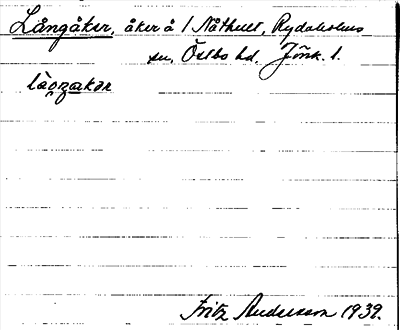 Långåker, åker å 1 Nåthult, Rydaholms
sn, Östbo hd. Jönk. l.
Fritz Andersson 1939.